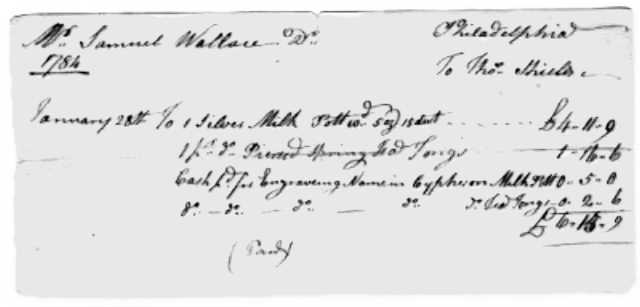 Mr. Samuel Wallace Dr.
Philadelphia
1784
To Thos. Shields
January 28th To 1 Silver Milk Pott wd. 5 oz 15 dwt £4-11-9
1 pr. do. Pierced Spring Tea Tongs 1-16-6
Cash pd. for Engraveing Name in Cypher on Milk Pott 0-5-0
do. — do. — do. — do. do. Tea Tongs 0-2-6
£6-15-9
(Paid)